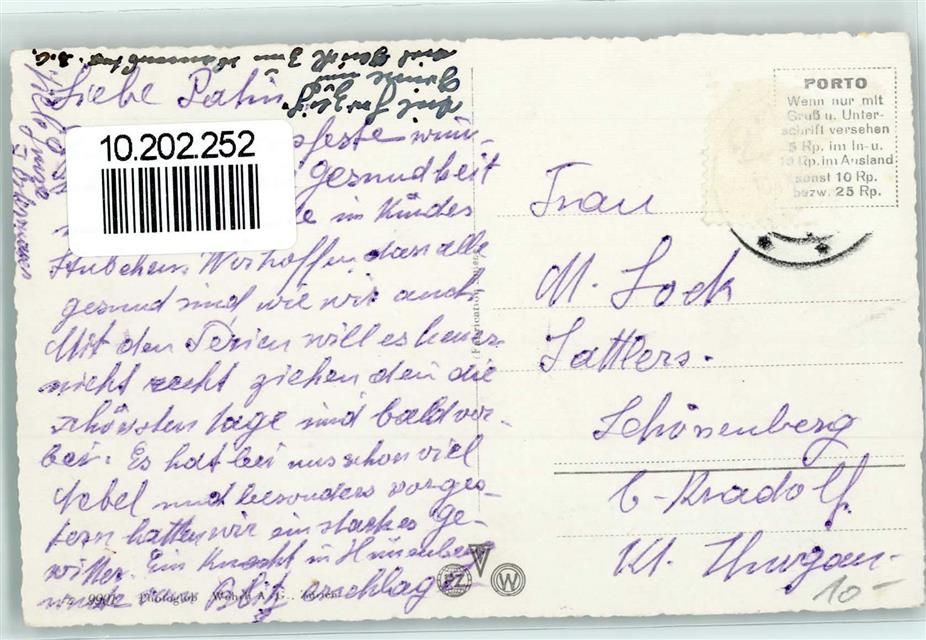 Liebe Patin
feste wün-
gesundheit
im Kindes
Stübchen. Wir hoffen, dass alle
gesund sind wie wir auch.
Mit den Ferien will es heuer
nicht recht ziehen den die
schönsten tage sind bald vor-
bei. Es hat bei uns schon viel
Nebel und besonders vorges-
tern hatten wir ein starkes ge-
witter. Ein Knecht in Hünenberg
wurde vom Blitz erschlagen
10.202.252
PORTO
Wenn nur mit
Gruß u. Unter-
schrift versehen
5 Rp. im In- u.
10 Rp. im Ausland
sonst 10 Rp.
bezw. 25 Rp.
Frau
M. Lock
Sattlers.
Schönenberg
b-Kradolf
Kt. Thurgau
10-
PZ
W
990
Photoglob Wehrli A. G., Zürich